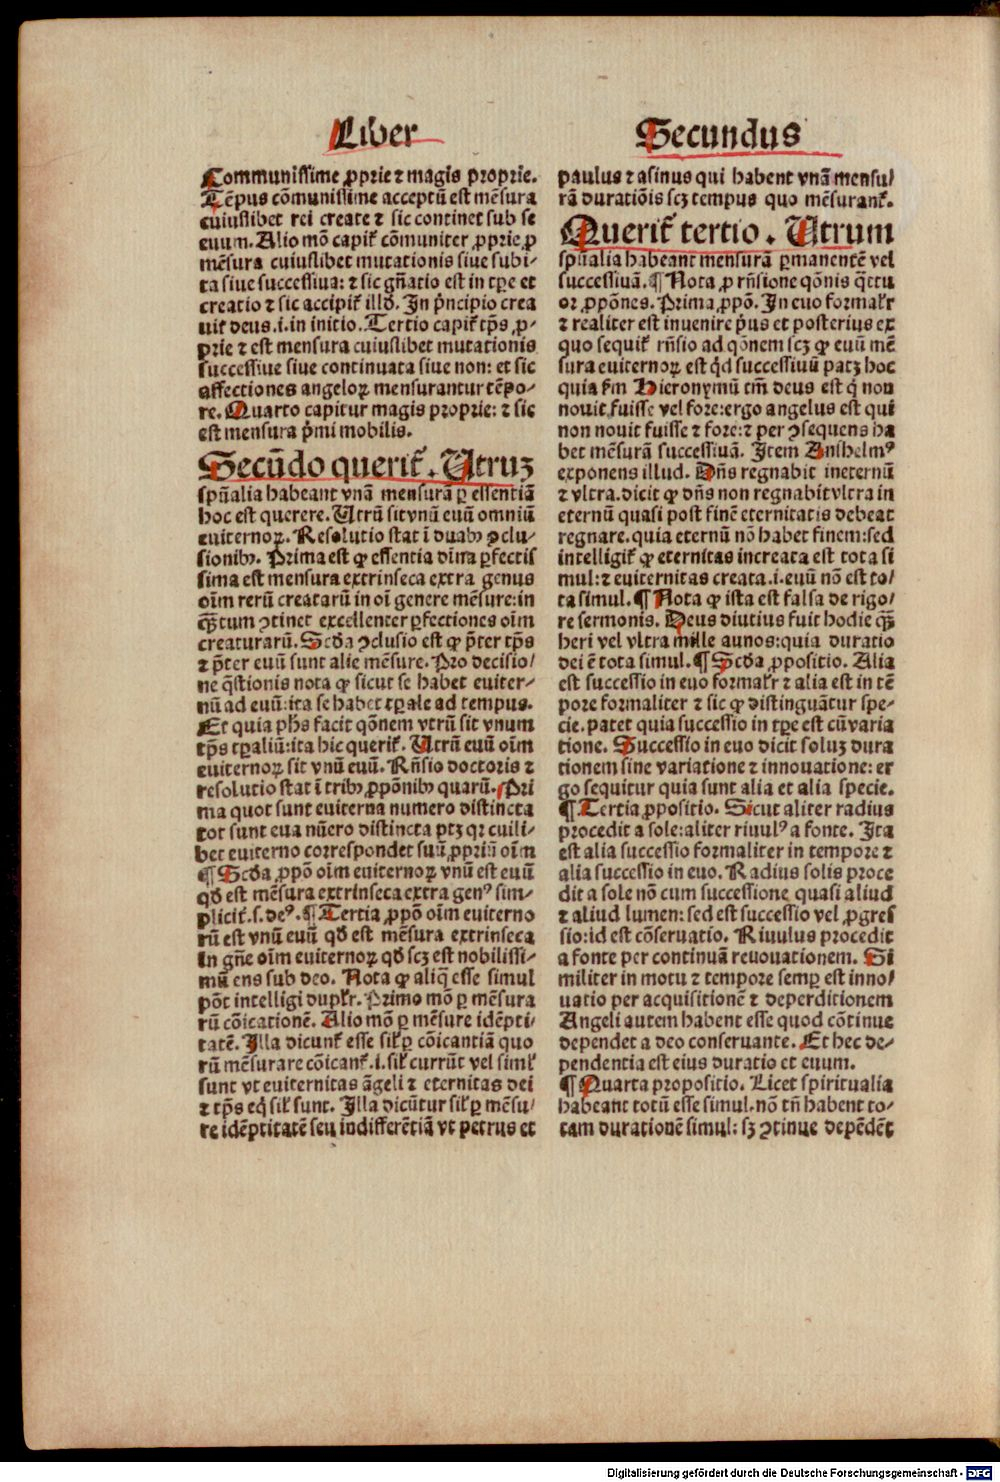 Liber
Secundus
Communissime ꝓprie ⁊ magis proprie.
Tēpus cōmunissime acceptū est mēsura
cuiuslibet rei create ⁊ sic continet sub se
euum. Alio mō capiť cōmuniter ꝓprie ꝓ
mēsura cuiuslibet mutationis siue subi-
ta siue successiua: ⁊ sic gn̄atio est in tꝑe et
creatio ⁊ sic accipiť illđ. In pͥncipio crea
uit deus .i. in initio. Tertio capiť tp̄s ꝓ-
prie ⁊ est mensura cuiuslibet mutationis
successiue siue continuata siue non: et sic
affectiones angeloꝝ mensurantur tēpo-
re. Quarto capitur magis proprie: ⁊ sic
est mensura pͥmi mobilis.
Secūdo queriť. Utruꝫ
spūalia habeant vnā mensurā ꝑ essentiā
hoc est querere. Utrū sit vnū euū omniū
euiternoꝝ. Resolutio stat ī duabꝰ ꝯclu-
sionibꝰ. Prima est ꝙ essentia diīna ꝑfectis
sima est mensura extrinseca extra genus
oīm rerū creatarū in oī genere mēsure: in
qꝫtum ꝯtinet excellenter ꝑfectiones oīm
creaturarū. Scđa ꝯclusio est ꝙ p̄ter tp̄s
⁊ p̄ter euū sunt alie mēsure. Pro decisio/
ne q̄stionis nota ꝙ sicut se habet euiter-
nū ad euū: ita se habet tꝑale ad tempus.
Et quia ph̄s facit qōnem vtrū sit vnum
tp̄s tꝑaliū: ita hic queriť. Utrū euū oīm
euiternoꝝ sit vnū euū. Rn̄sio doctoris ⁊
resolutio stat ī tribꝰ ꝓpōnibꝰ quarū. Pri
ma quot sunt euiterna numero distincta
tot sunt eua nūero distincta ptꝫ qꝛ cuili-
bet euiterno correspondet suū ꝓpriū oīm
¶ Scđa ꝓpō oīm euiternoꝝ vnū est euū
qđ est mēsura extrinseca extra genꝰ sim-
pliciť.s.deꝰ. ¶ Tertia ꝓpō oīm euiterno
rū est vnū euū qđ est mēsura extrinseca
in gn̄e oīm euiternoꝝ qđ scꝫ est nobilissi-
mū ens sub deo. Nota ꝙ aliq̄ esse simul
pōt intelligi dupľr. Primo mō ꝑ mēsura
rū cōicationē. Alio mō ꝑ mēsure idēpti-
tatē. Illa dicunť esse siľ ꝑ cōicantiā quo
rū mēsurare cōicanť .i. siľ currūt vel simľ
sunt vt euiternitas āgeli ⁊ eternitas dei
⁊ tp̄s eq̇ siľ sunt. Illa dicūtur siľ ꝑ mēsu/
re idēptitatē seu indifferētiā vt petrus et
paulus ⁊ asinus qui habent vnā mensu/
rā duratiōis scꝫ tempus quo mēsuranť.
Queriť tertio. Utrum
spūalia habeant mensurā ꝑmanentē vel
successiuā. ¶ Nota ꝓ rn̄sione qōnis q̄ttu
or ꝓpōnes. Prima ꝓpō. In euo formaľr
⁊ realiter est inuenire pͥus et posterius ex
quo sequiť rn̄sio ad qōnem scꝫ ꝙ euū mē
sura euiternoꝝ est qͥd successiuū patꝫ hoc
quia ẜm Hieronymū tm̄ deus est q̇ non
nouit fuisse vel fore: ergo angelus est qui
non nouit fuisse ⁊ fore: ⁊ per ꝯsequens ha
bet mēsurā successiuā. Item Anshelmꝰ
exponens illud. Dn̄s regnabit ineternū
⁊ vltra. dicit ꝙ dn̄s non regnabit vltra in
eternū quasi post finē eternitatis debeat
regnare. quia eternū nō habet finem: sed
intelligiť ꝙ eternitas increata est tota si
mul: ⁊ euiternitas creata .i. euū nō est to/
ta simul. ¶ Nota ꝙ ista est falsa de rigo/
re sermonis. Deus diutius fuit hodie qꝫ
heri vel vltra mille annos: quia duratio
dei ē tota simul. ¶ Scđa ꝓpositio. Alia
est successio in euo formaľr ⁊ alia est in tē
pore formaliter ⁊ sic ꝙ distinguātur spe-
cie. patet quia successio in tꝑe est cū varia
tione. Successio in euo dicit soluꝫ dura
tionem sine variatione ⁊ innouatione: er
go sequitur quia sunt alia et alia specie.
¶ Tertia ꝓpositio. Sicut aliter radius
procedit a sole: aliter riuulꝰ a fonte. Ita
est alia successio formaliter in tempore ⁊
alia successio in euo. Radius solis proce
dit a sole nō cum successione quasi aliud
⁊ aliud lumen: sed est successio vel ꝓgres
sio: id est cōseruatio. Riuulus procedit
a fonte per continuā renouationem. Si
militer in motu ⁊ tempore semꝑ est inno/
uatio per acquisitionē ⁊ deperditionem
Angeli autem habent esse quod cōtinue
dependet a deo conseruante. Et hec de-
pendentia est eius duratio et euum.
¶ Quarta propositio. Licet spiritualia
habeant totū esse simul. nō tn̄ habent to-
tam durationē simul: sꝫ ꝯtinue depēdēt
Digitalisierung gefördert durch die Deutsche Forschungsgemeinschaft - DFG